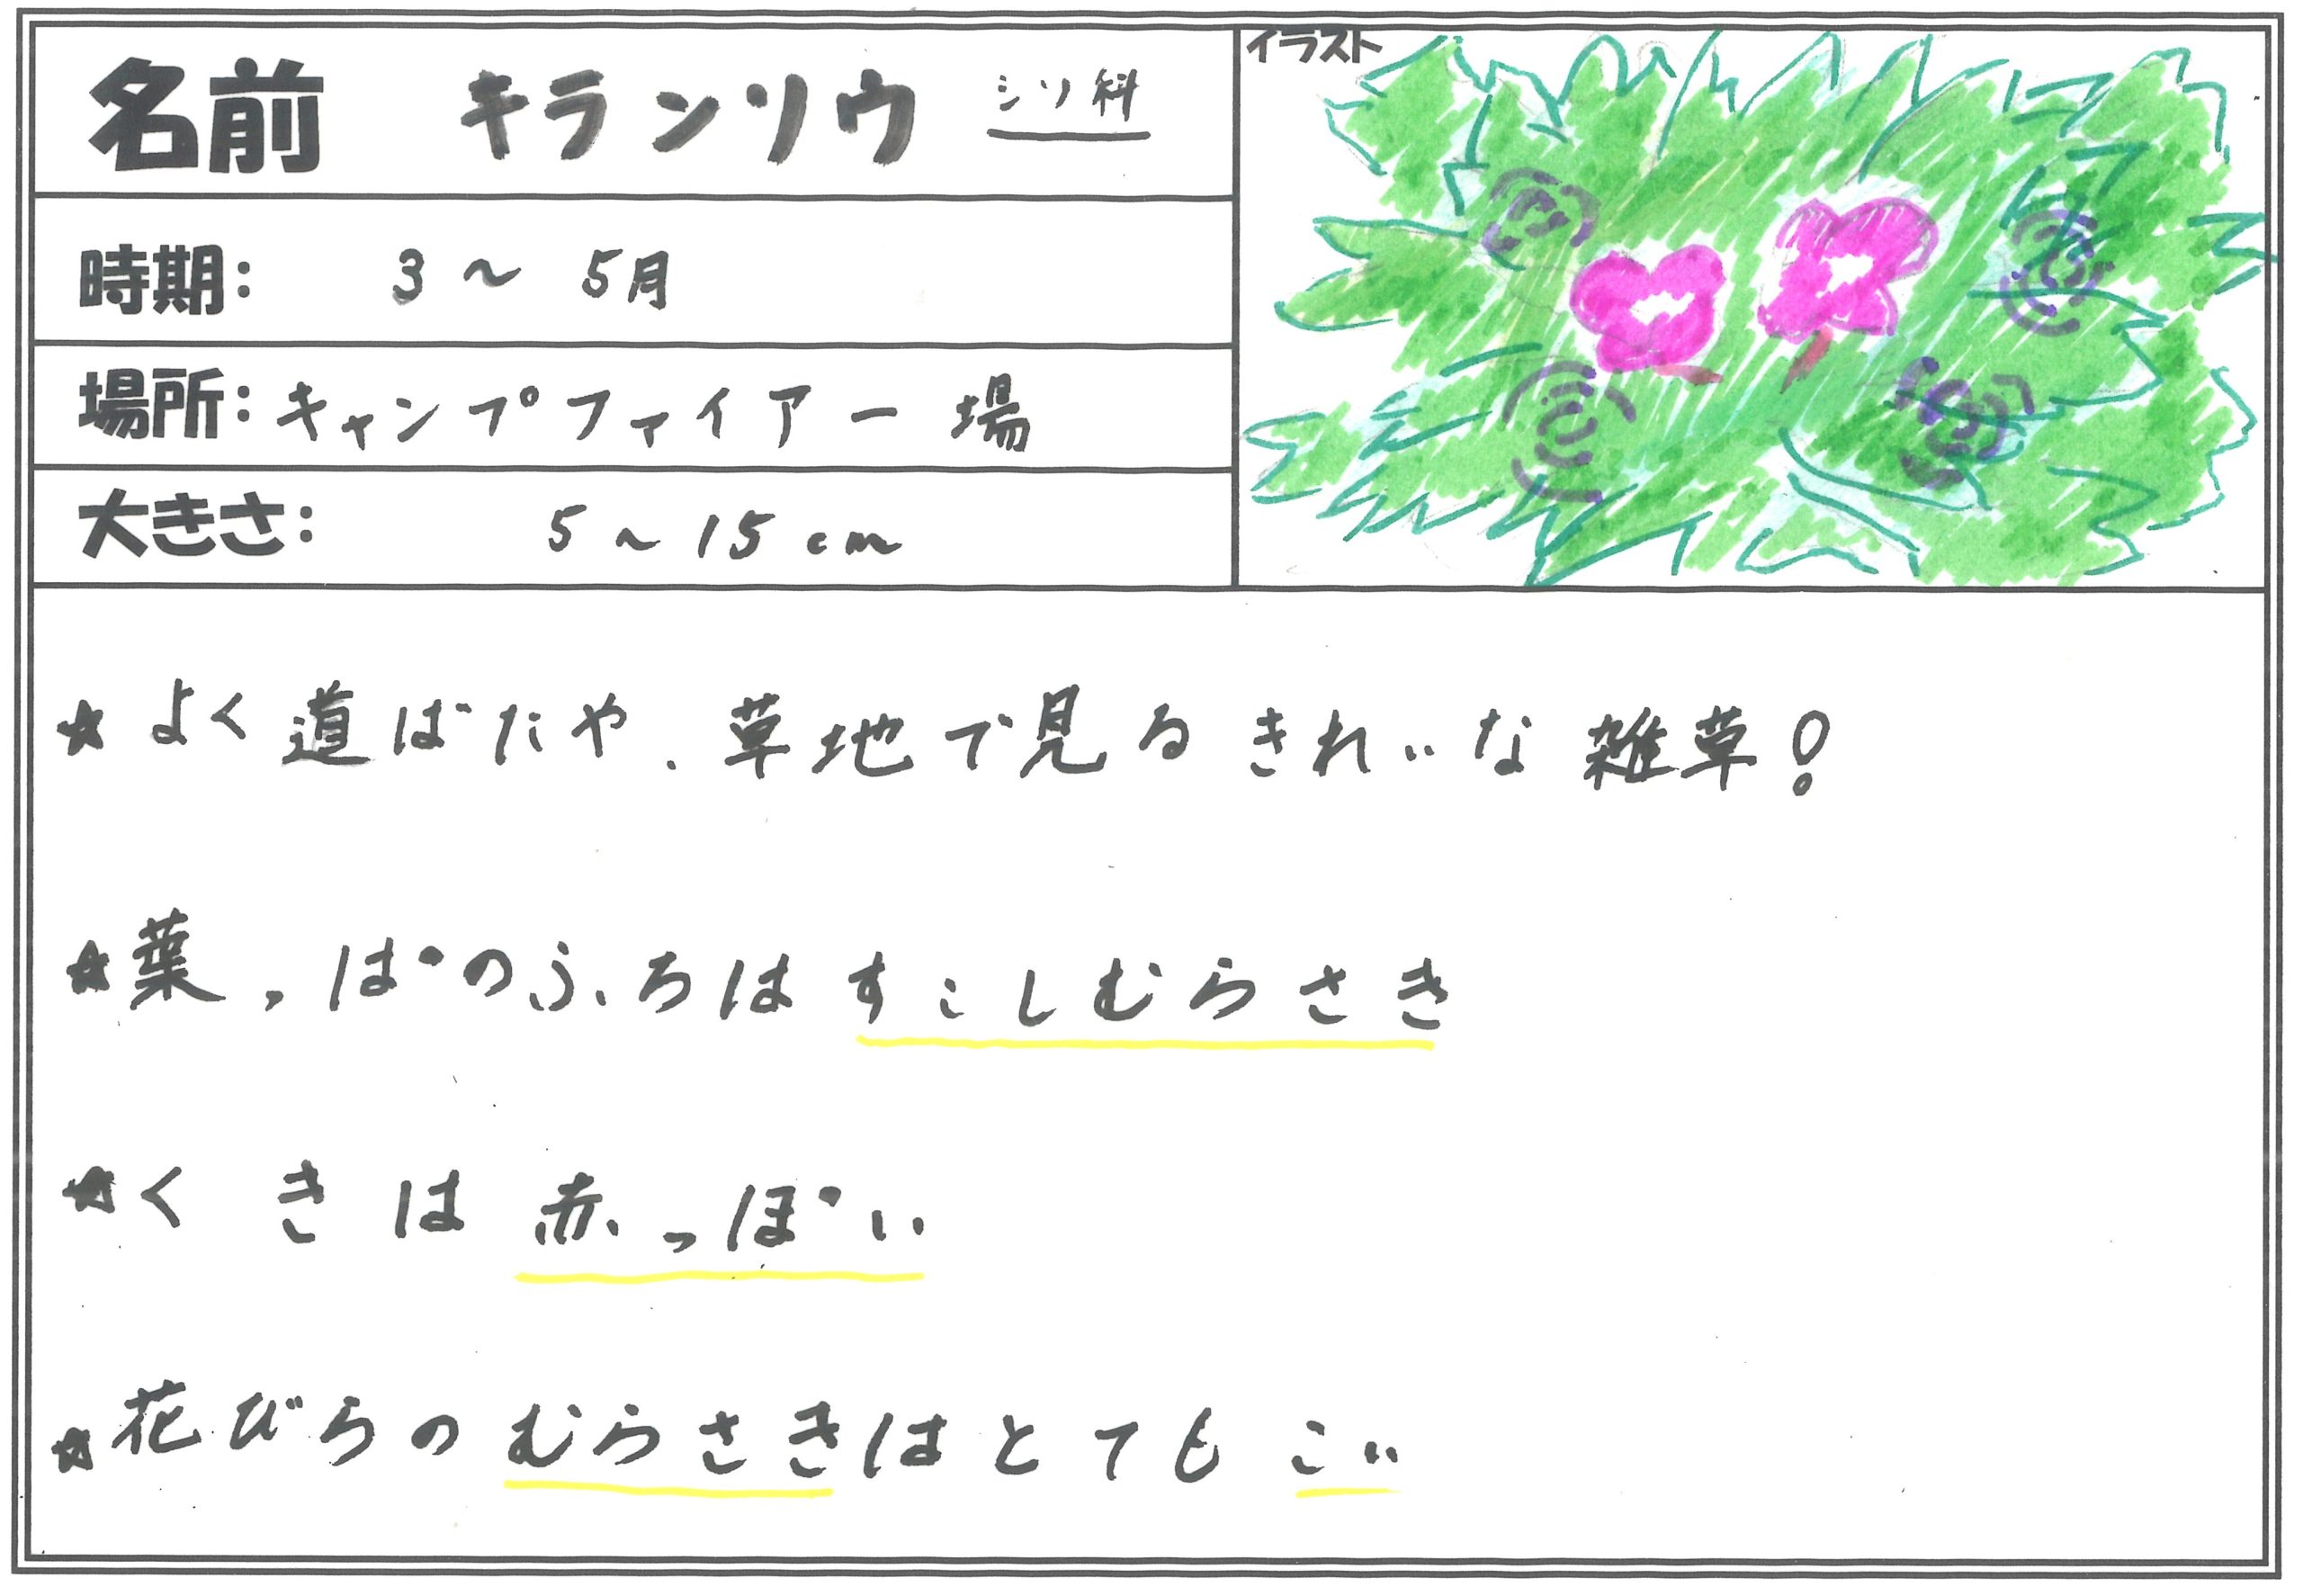 名前 キランソウ シソ科
イラスト
時期: 3〜5月
場所:キャンプファイアー場
大きさ: 5〜15cm
★よく道ばたや、草地で見るきれいな雑草!
★葉っぱのふちはすこしむらさき
★くきは赤っぽい
★花びらのむらさきはとてもこい